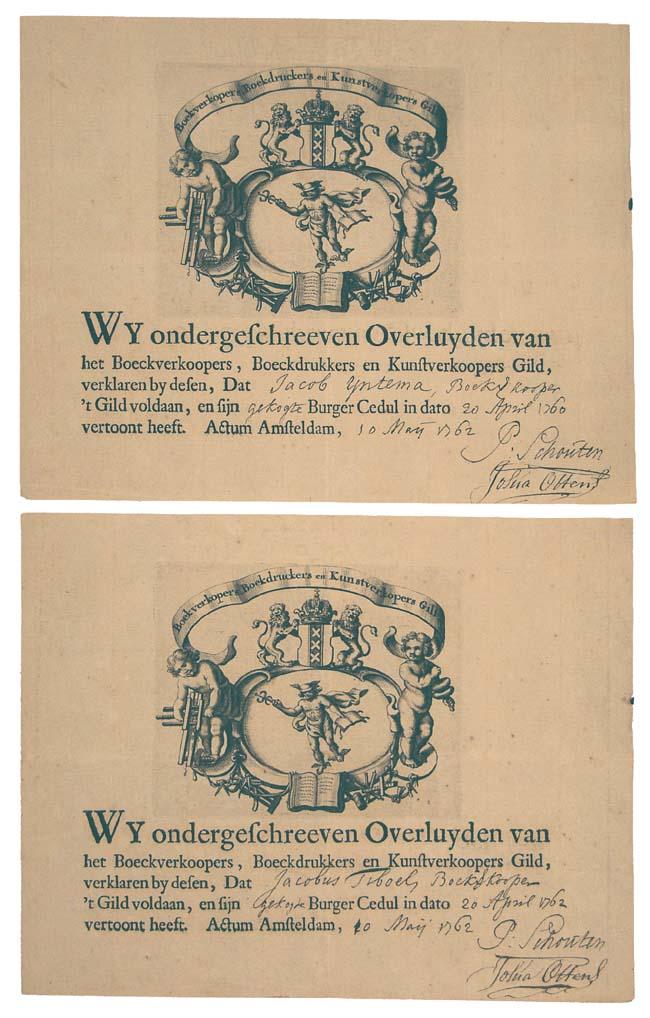 Boeckverkopers Boekdruckers en Kunstverkopers Gild
WY ondergeſchreeven Overluyden van
het Boeckverkoopers, Boeckdrukkers en Kunſtverkoopers Gild,
verklaren by deſen, Dat Jacob Yntema, Boekverkooper
't Gild voldaan, en ſijn gekogte Burger Cedul in dato 20 April 1760
vertoont heeft. Actum Amſteldam, 10 Maij 1762
P: Schouten
Joſua Ottens
Boeckverkopers Boekdruckers en Kunstverkopers Gild
WY ondergeſchreeven Overluyden van
het Boeckverkoopers, Boeckdrukkers en Kunſtverkoopers Gild,
verklaren by deſen, Dat Jacobus Tiboel, Boekverkooper
't Gild voldaan, en ſijn gekogte Burger Cedul in dato 20 April 1762
vertoont heeft. Actum Amſteldam, 10 Maij 1762
P: Schouten
Joſua Ottens